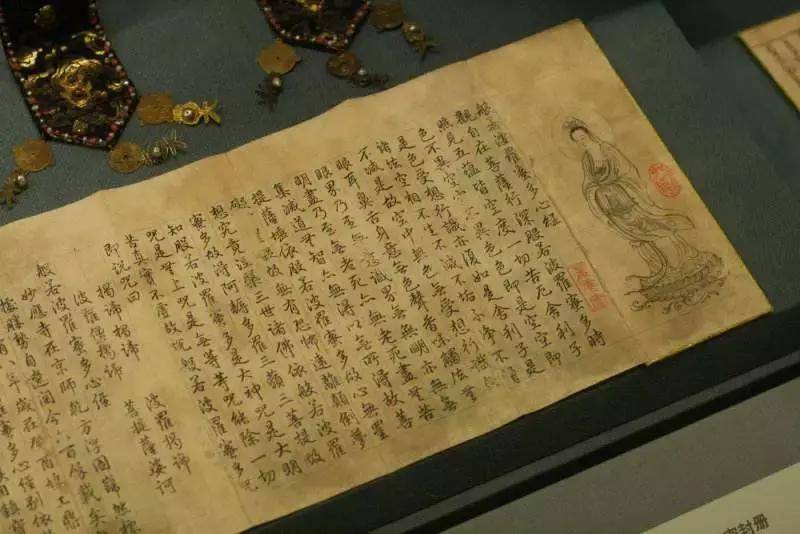 般若波羅蜜多心經
觀自在菩薩行深般若波羅蜜多時
照見五蘊皆空度一切苦厄舍利子
色不異空空不異色色即是空空即
是色受想行識亦復如是舍利子是
諸法空相不生不滅不垢不淨不增
不減是故空中無色無受想行識無
眼耳鼻舌身意無色聲香味觸法無
眼界乃至無意識界無無明亦無無
明盡乃至無老死亦無老死盡無苦
集滅道無智亦無得以無所得故菩
提薩埵依般若波羅蜜多故心無罣
碍無罣碍故無有恐怖遠離顛倒夢
想究竟涅槃三世諸佛依般若波羅
蜜多故得阿耨多羅三藐三菩提故
知般若波羅蜜多是大神呪是大明
呪是無上呪是無等等呪能除一切
苦真實不虛故說般若波羅蜜多呪
即說呪曰
揭諦揭諦 波羅揭諦
波羅僧揭諦 菩提薩婆訶
般若波羅蜜多心經
妙應寺在京師乾方浮圖歸然標
勝勢自遼 今六百餘載矣
封册